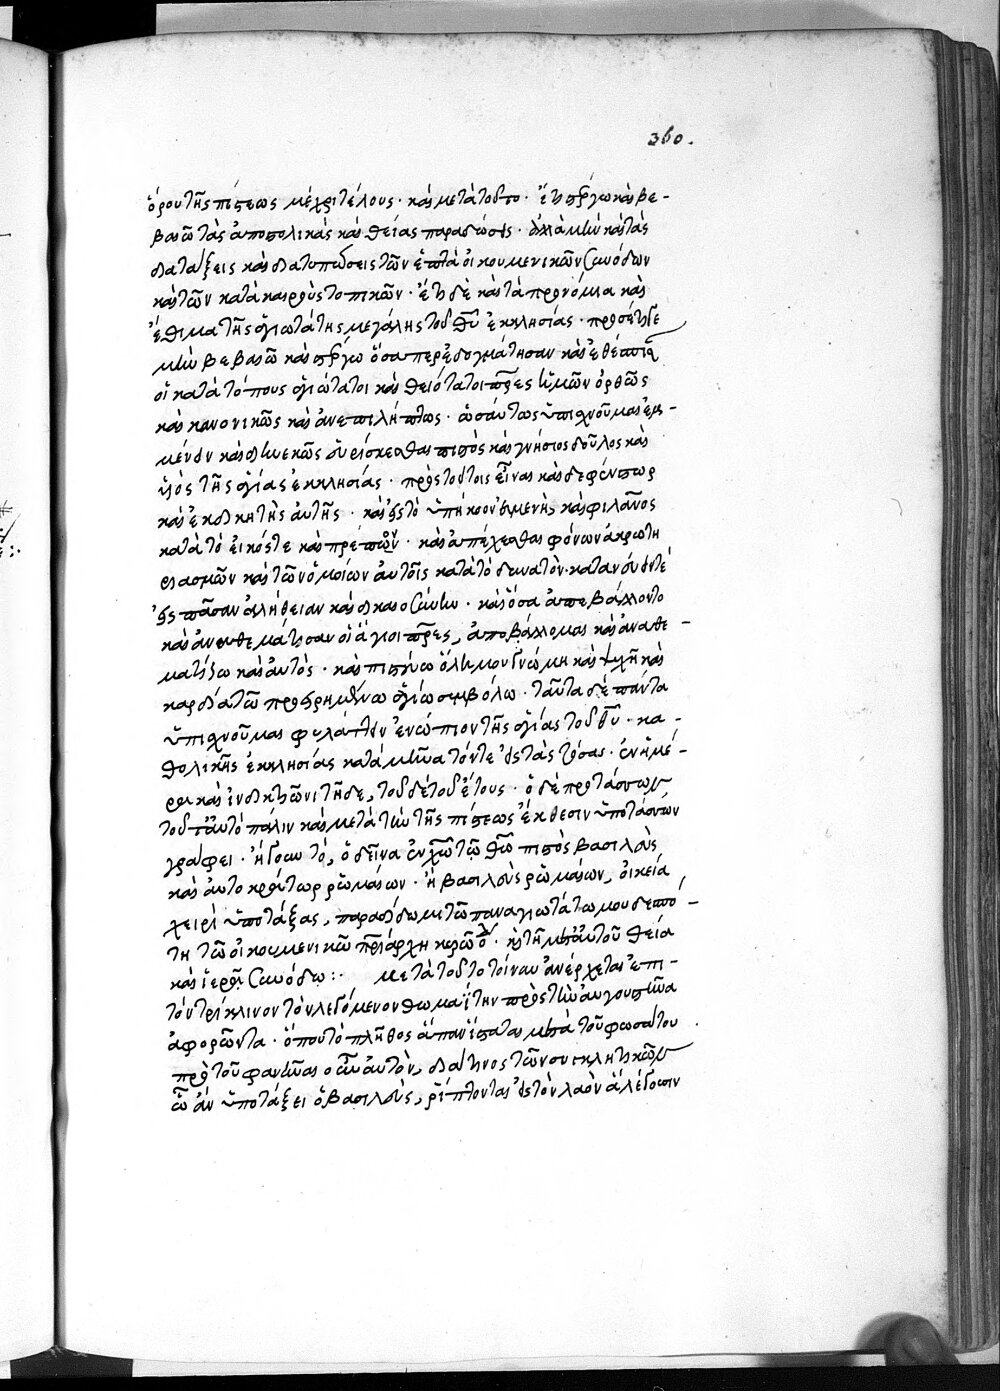 360.
ὅρου τῆς πίστεως μέχρι τέλους. καὶ μετὰ τοῦτο. ἔτι στέργω καὶ βε-
βαιῶ τὰς ἀποστολικὰς καὶ θείας παραδόσεις. ἀλλὰ μὴν καὶ τὰς
διατάξεις καὶ διατυπώσεις τῶν ἑπτὰ οἰκουμενικῶν συνόδων
καὶ τῶν κατὰ καιροὺς τοπικῶν. ἔτι δὲ καὶ τὰ προνόμια καὶ
ἔθιμα τῆς ἁγιωτάτης μεγάλης τοῦ θυ ἐκκλησίας. προσέτι δὲ
μὴν βεβαιῶ καὶ στέργω ὅσα περ ἐδογμάτησαν καὶ ἐθέσπισαν
οἱ κατὰ τόπους ἁγιώτατοι καὶ θειότατοι πρες ἡμῶν ὀρθῶς
καὶ κανονικῶς καὶ ἀνεπιλήπτως. ὡσαύτως ὑπισχνοῦμαι ἐμ-
μένειν καὶ διηνεκῶς εὑρίσκεσθαι πιστὸς καὶ γνήσιος δοῦλος καὶ
υἱὸς τῆς ἁγίας ἐκκλησίας. πρὸς τούτοις εἶναι καὶ δεφένστωρ
καὶ ἐκδικητὴς αὐτῆς. καὶ εἰς τὸ ὑπήκοον εὐμενὴς καὶ φιλανος
κατὰ τὸ εἰκός τε καὶ πρέπον. καὶ ἀπέχεσθαι φόνων ἀκρωτη
ριασμῶν καὶ τῶν ὁμοίων αὐτοῖς κατὰ τὸ δυνατὸν. κατανεύειν τε
εἰς πᾶσαν ἀλήθειαν καὶ δικαιοσύνην. καὶ ὅσα ἀπεβάλλοντο
καὶ ἀνεθεμάτισαν οἱ ἅγιοι πρες, ἀποβάλλομαι καὶ ἀναθε-
ματίζω καὶ αὐτὸς. καὶ πιστεύω ὅλῃ μου γνώμῃ καὶ ψυχῇ καὶ
καρδίᾳ τῷ προειρημένῳ ἁγίῳ συμβόλῳ. ταῦτα δὲ πάντα
ὑπισχνοῦμαι φυλάττειν ἐνώπιον τῆς ἁγίας τοῦ θυ. κα-
θολικῆς ἐκκλησίας κατὰ μῆνα τόνδε εἰς τὰς τόσας. ἐν ἡμέ-
ρᾳ καὶ ἰνδικτιῶνι τῇδε, τοῦδε τοῦ ἔτους. ὁ δὲ προτάσσων
τοῦτ' αὐτὸ πάλιν καὶ μετὰ τὴν τῆς πίστεως ἔκθεσιν ὑποτάσσων
γράφει. ἤγουν τὸ, ὁ δεῖνα ἐν χω τῷ θω πιστὸς βασιλεὺς
καὶ αὐτοκράτωρ ῥωμαίων. ἢ βασιλεὺς ῥωμαίων, οἰκείᾳ
χειρὶ ὑποτάξας, παραδίδωμι τῷ παναγιωτάτῳ μου δεσπό-
τῃ τῷ οἰκουμενικῷ πριάρχῃ κυρῷ καὶ τῇ μετ' αὐτοῦ θείᾳ
καὶ ἱερᾷ συνόδῳ:· μετὰ τοῦτο τοίνυν ἀνέρχεται ἐπὶ-
τὸν τρίκλινον τὸν λεγόμενον θωμαΐτην πρὸς τὴν αὐγουστῶνα
ἀφορῶντα. ὅπου τὸ πλῆθος ἅπαν ἵσταται μετὰ τοῦ φωσάτου
πρὸ τοῦ φανῆναι αὐτὸν, διά τινος τῶν συγκλητικῶν
ᾧ ἂν ὑποτάξει ὁ βασιλεὺς, ῥίπτονται εἰς τὸν λαὸν ἃ λέγουσιν